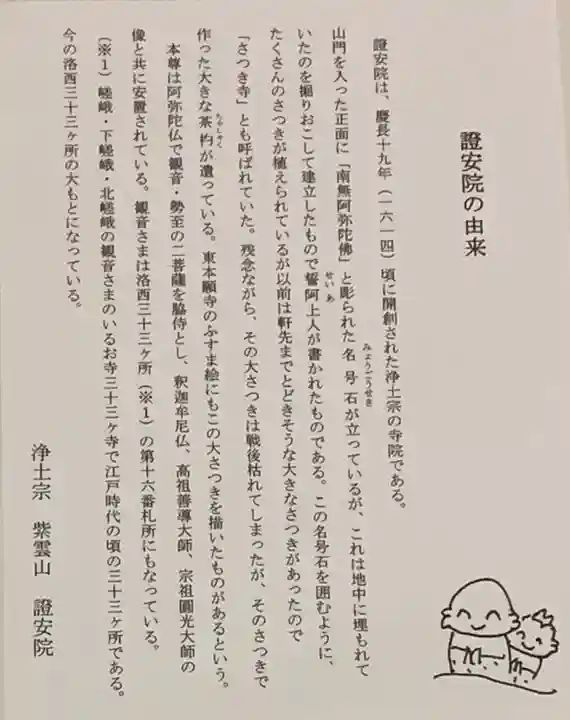 證安院の由来
證安院は、慶長十九年（一六一四）頃に開創された浄土宗の寺院である。
山門を入った正面に「南無阿弥陀佛」と彫られた名号石が立っているが、これは地中に埋もれて
みょうごうせき
いたのを掘りおこして建立したもので誓阿上人が書かれたものである。この名号石を囲むように、
せいあ
たくさんのさつきが植えられているが以前は軒先までとどきそうな大きなさつきがあったので
「さつき寺」とも呼ばれていた。残念ながら、その大さつきは戦後枯れてしまったが、そのさつきで
作った大きな茶杓が遺っている。東本願寺のふすま絵にもこの大さつきを描いたものがあるという。
ちゃしゃく
本尊は阿弥陀仏で観音・勢至の二菩薩を脇侍とし、釈迦牟尼仏、高祖善導大師、宗祖圓光大師の
像と共に安置されている。観音さまは洛西三十三ヶ所（※１）の第十六番札所にもなっている。
（※１）嵯峨・下嵯峨・北嵯峨の観音さまのいるお寺三十三ヶ寺で江戸時代の頃の三十三ヶ所である。
今の洛西三十三ヶ所の大もとになっている。
浄土宗　紫雲山　證安院